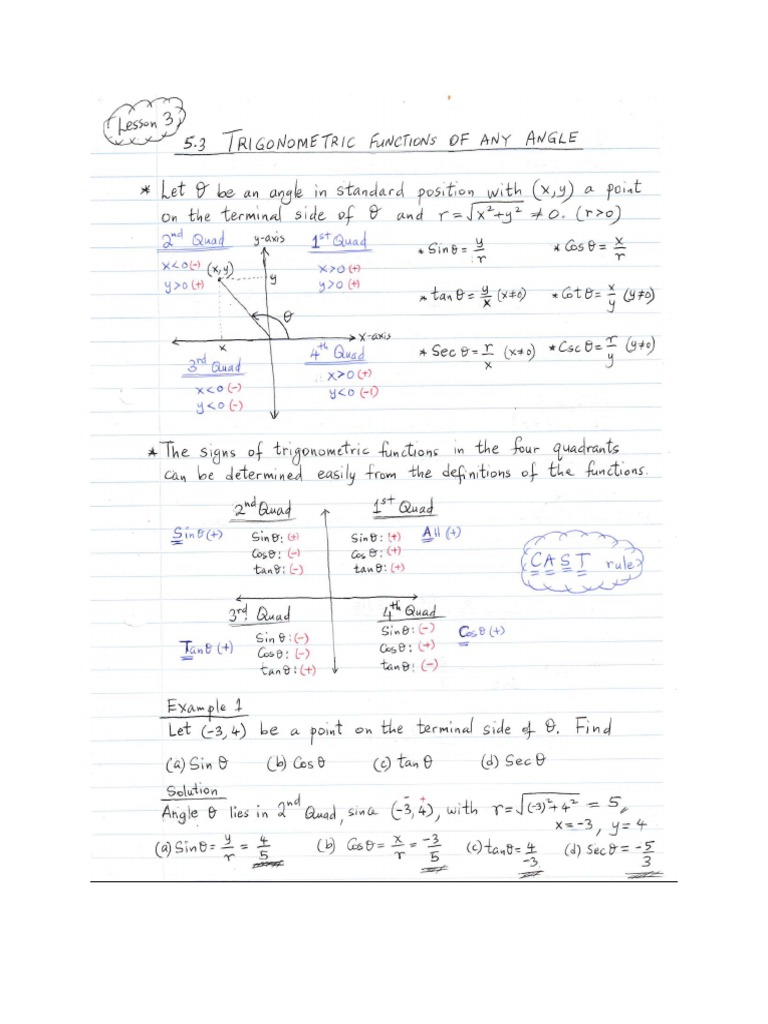 Lesson 3
5.3 TRIGONOMETRIC FUNCTIONS OF ANY ANGLE
* Let θ be an angle in standard position with (x,y) a point
on the terminal side of θ and r = √x²+y² ≠ 0. (r>0)
2nd Quad
y-axis
1st Quad
x<0 (-)
y>0 (+)
(x,y)
y
x>0 (+)
y>0 (+)
θ
x
x-axis
3rd Quad
x<0 (-)
y<0 (-)
4th Quad
x>0 (+)
y<0 (-1)
* Sinθ = y/r * Cosθ = x/r
* tanθ = y/x (x≠0) * Cotθ = x/y (y≠0)
* Secθ = r/x (x≠0) * Cscθ = r/y (y≠0)
* The signs of trigonometric functions in the four quadrants
can be determined easily from the definitions of the functions.
2nd Quad
1st Quad
Sinθ (+)
Sinθ: (+)
Cosθ: (-)
tanθ: (-)
Sinθ: (+)
Cosθ: (+)
tanθ: (+)
All (+)
CAST rule
3rd Quad
4th Quad
Tanθ (+)
Sinθ: (-)
Cosθ: (-)
tanθ: (+)
Sinθ: (-)
Cosθ: (+)
tanθ: (-)
Cosθ (+)
Example 1
Let (-3,4) be a point on the terminal side of θ. Find
(a) Sinθ (b) Cosθ (c) tanθ (d) Secθ
Solution
Angle θ lies in 2nd Quad, sinc (-3,4), with r = √(-3)²+4² = 5,
- +
x=-3, y=4
(a) Sinθ = y/r = 4/5 (b) Cosθ = x/r = -3/5 (c) tanθ = 4/-3 (d) Secθ = -5/3